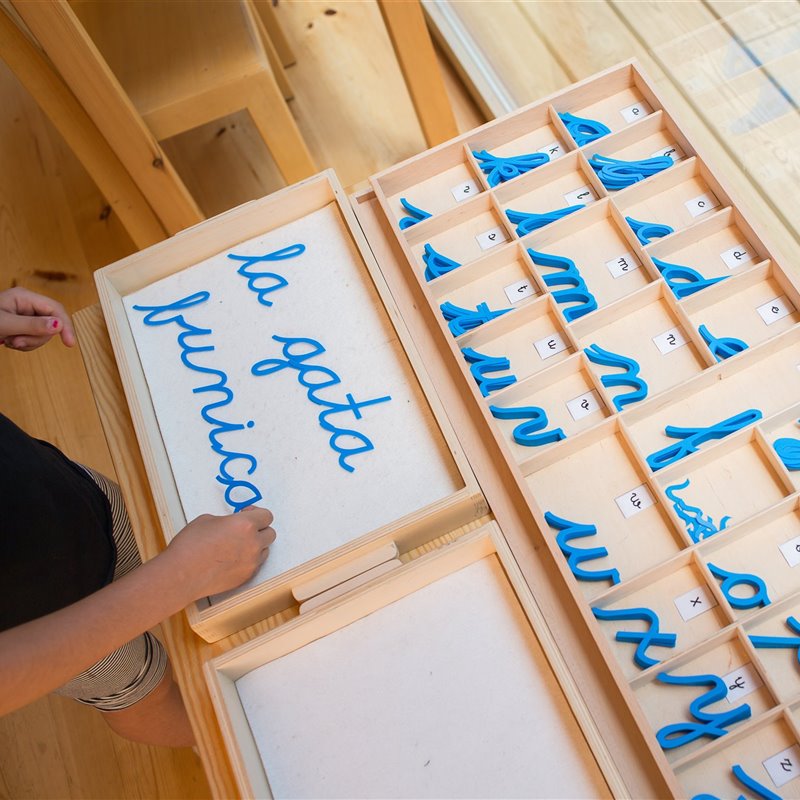 la gata
bunica
a
b
c
d
e
k
l
m
n
r
s
t
u
v
w
x
y
z